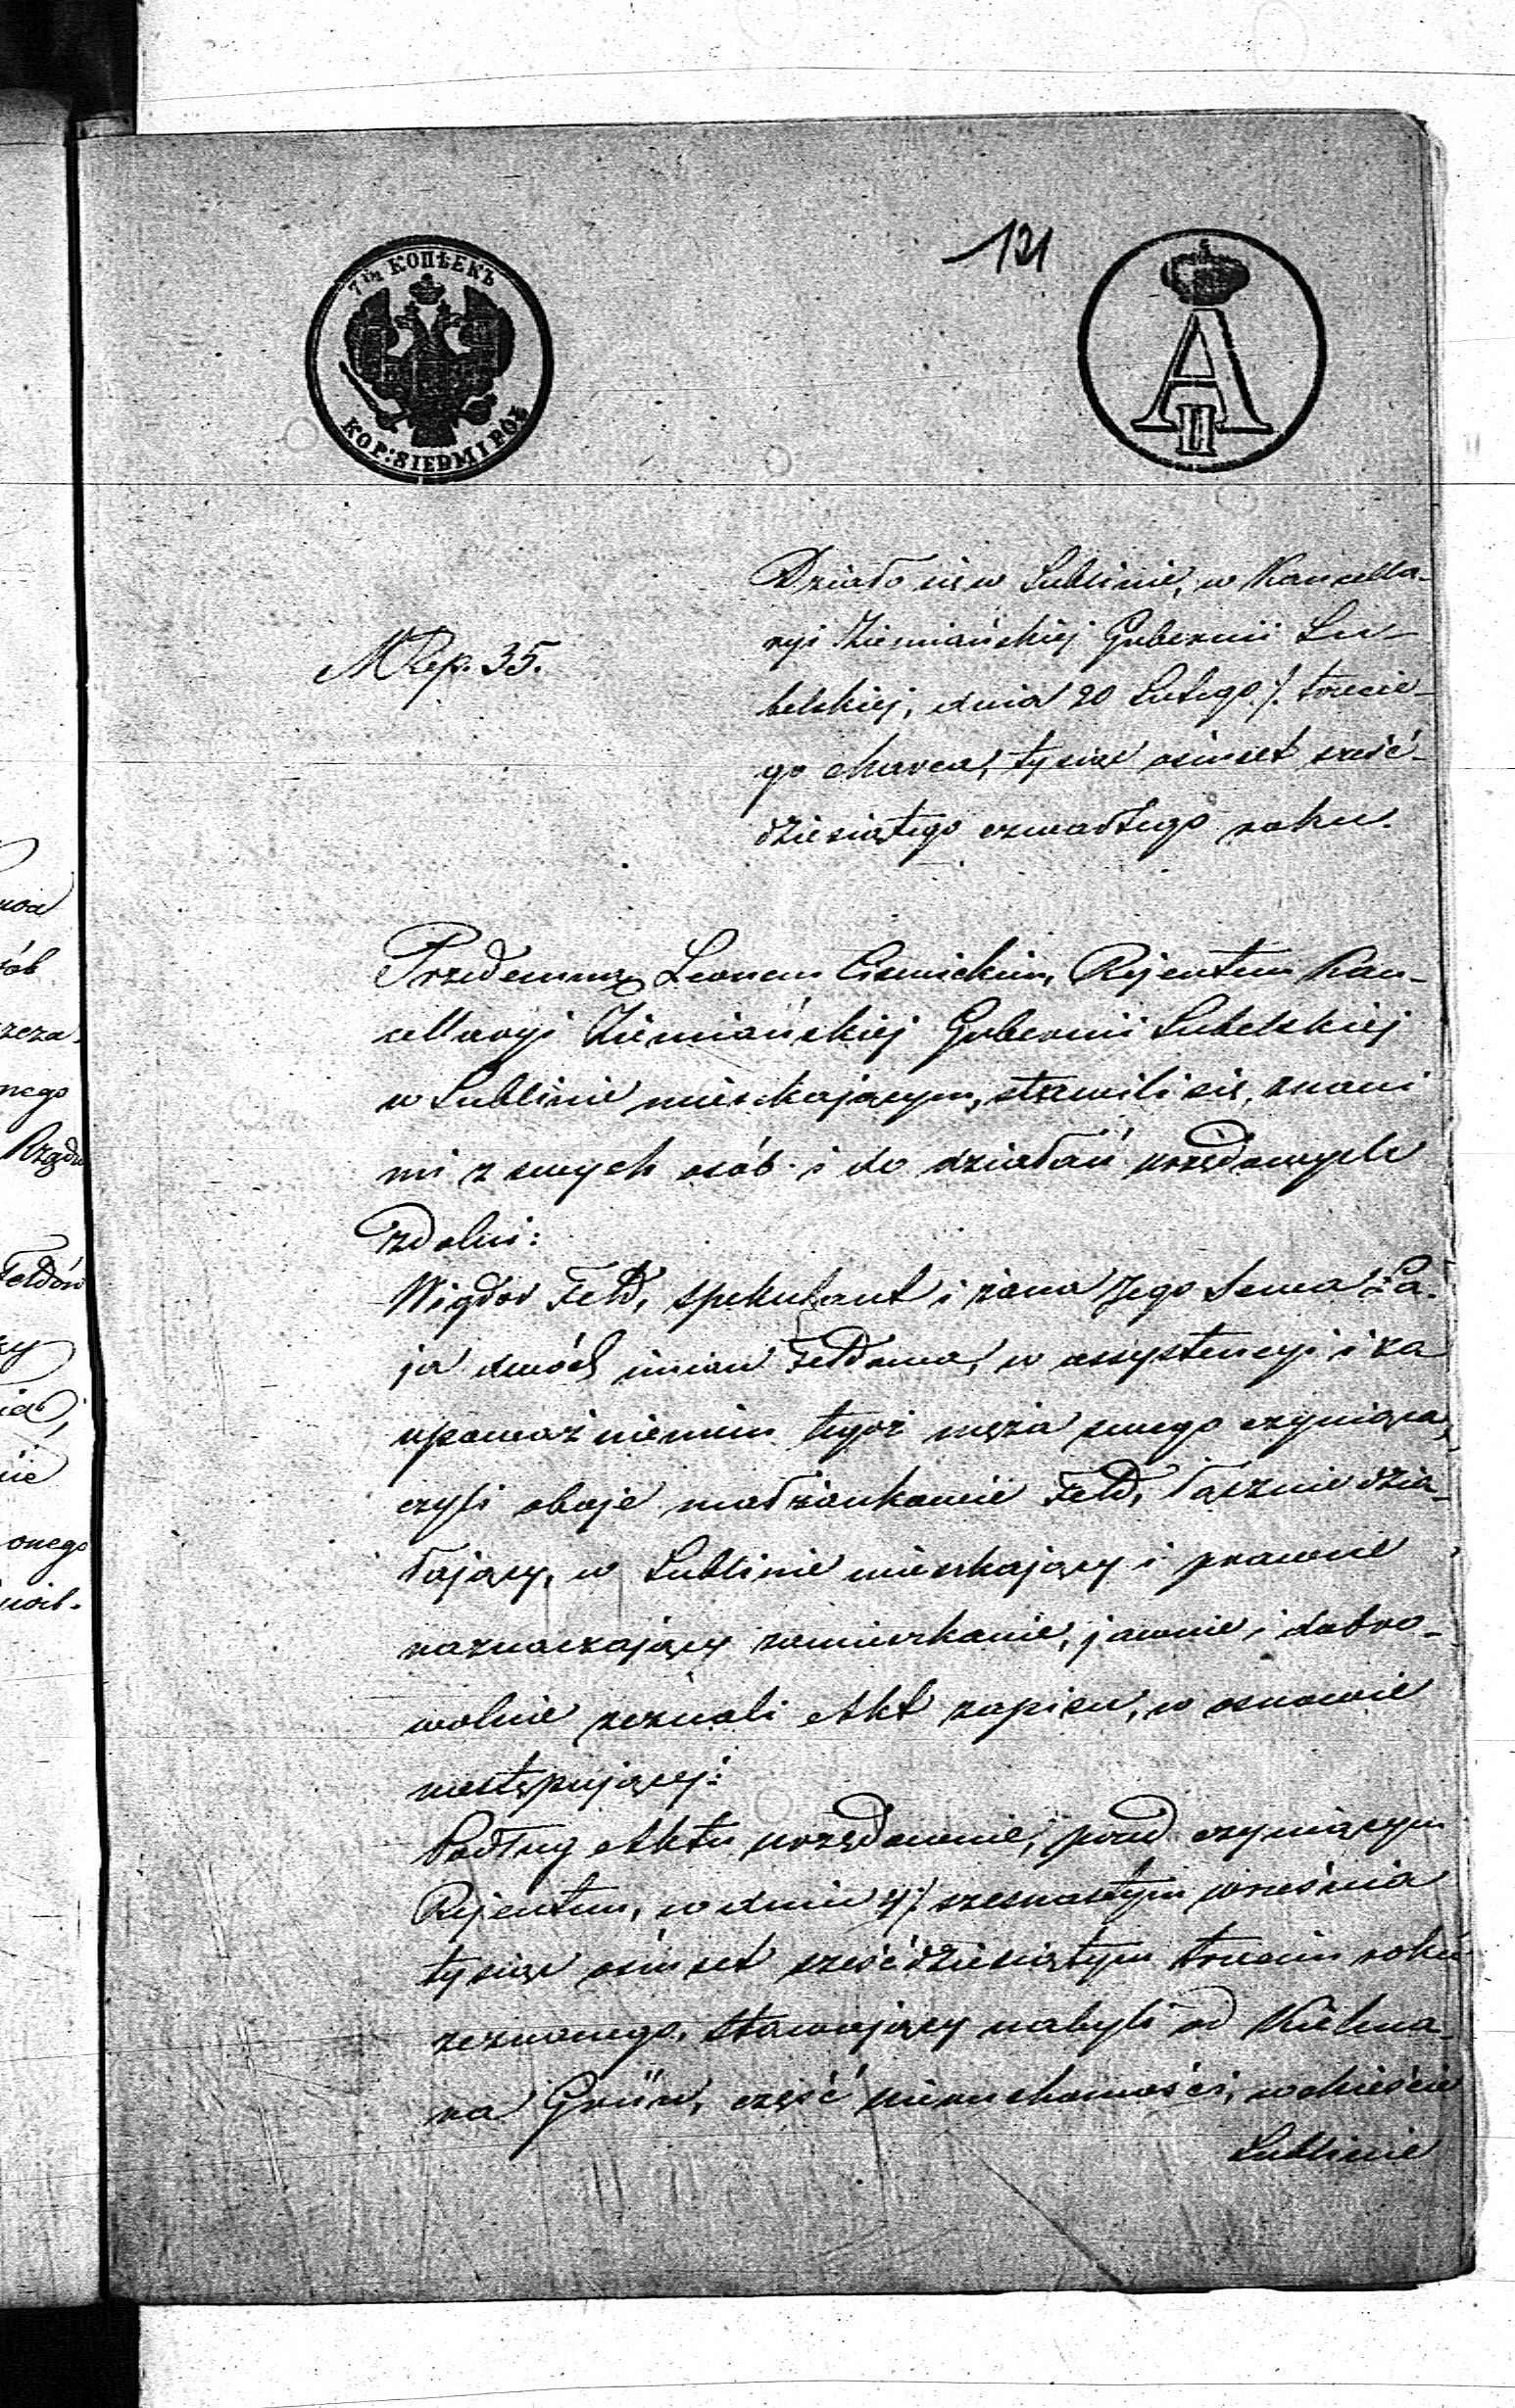 121
7½ КОПѢЕКЪ
KOP: SIEDM I PÓŁ
A II
Działo się w Lublinie, w Kancella-
ryi Ziemiańskiej Gubernii Lu-
belskiej, dnia 20 Lutego /. trzecie-
go Marca, tysiąc ośmset sześć-
dziesiątego czwartego roku.
N Rep. 35.
Przedemną Leonem Rejentem Kan-
cellaryi Ziemiańskiej Gubernii Lubelskiej
w Lublinie mieszkającym, stawili się, znani
mi z swych osób i do działań urzędowych
zdolni:
Wigdor Feld, spekulant i żona Jego Sewa Ła-
ja dwóch imion Feldowa, w assystencyi i za
upoważnieniem tegoż męża swego czyniąca,
czyli oboje małżonkowie Feld, łącznie dzia-
łający, w Lublinie mieszkający i prawne
naznaczający zamieszkanie, jawnie i dobro-
wolnie zeznali Akt zapisu, w osnowie
następującej:
Podług Aktu urzędownie, przed czyniącym
Rejentem, w dniu 4/. szesnastym września
tysiąc ośmset sześćdziesiątym trzecim roku
zeznanego, stawający nabyli od Kielma-
na Grün, część nieruchomości, w Mieście
Lublinie
nego
Feldów
onego